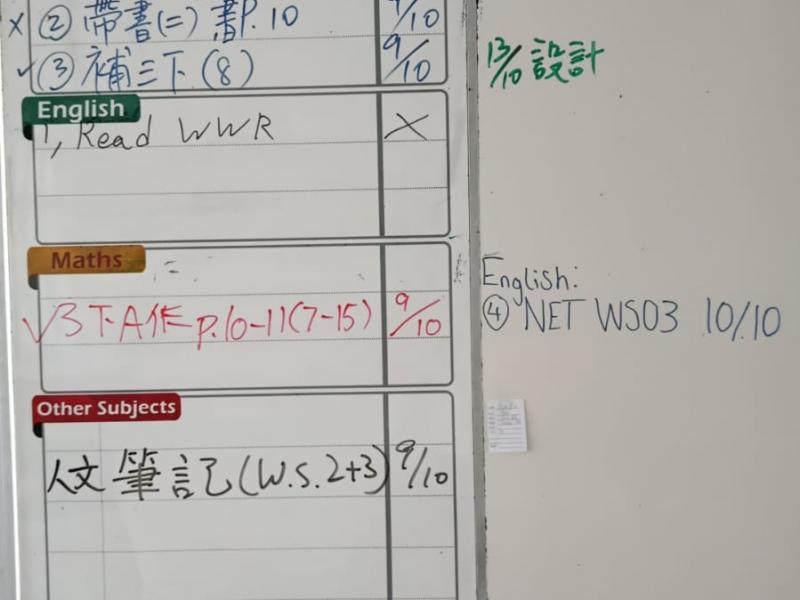 x ② 帶書(二) 書P.10 9/10
✓③ 補三下(8) 9/10
13/10 設計
English
1, Read WWR X
Maths
English:
✓3下A作 p.10-11(7-15) 9/10
④ NET WS03 10/10
Other Subjects
人文筆記(W.S.2+3) 9/10